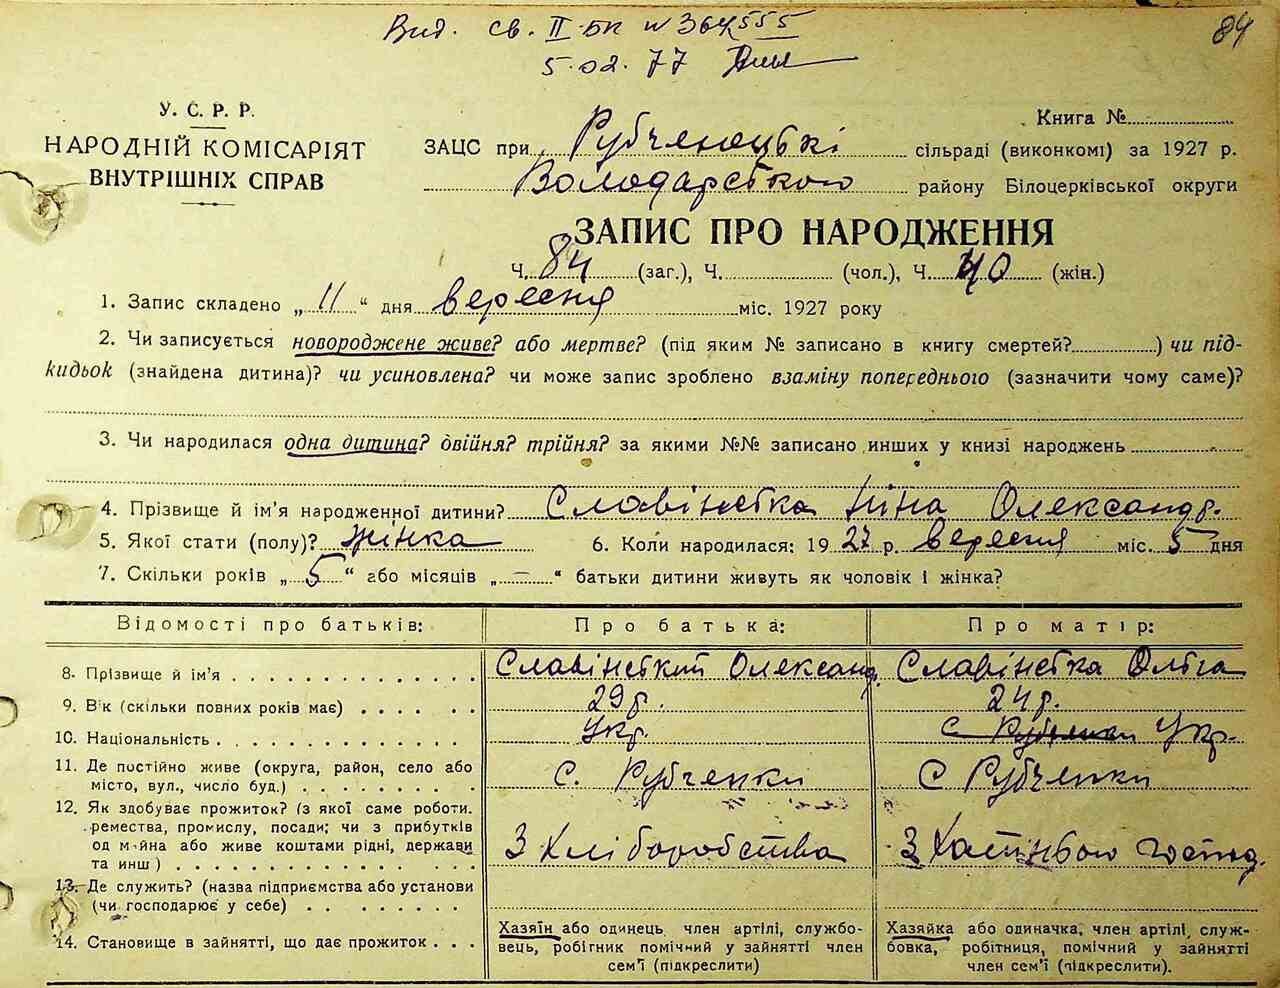 Вид. св. II-БК № 364555
84
5.02.77
У. С. Р. Р.
НАРОДНІЙ КОМІСАРІЯТ
ВНУТРІШНІХ СПРАВ
Книга №
ЗАЦС при Рубченецькі сільраді (виконкомі) за 1927 р.
Володарського району Білоцерківської округи
ЗАПИС ПРО НАРОДЖЕННЯ
Ч. 84 (заг.), Ч. (чол.), Ч. 40 (жін.)
1. Запис складено „11“ дня вересня міс. 1927 року
2. Чи записується новороджене живе? або мертве? (під яким № записано в книгу смертей? ) чи під-
кидьок (знайдена дитина)? чи усиновлена? чи може запис зроблено взаміну попереднього (зазначити чому саме)?
3. Чи народилася одна дитина? двійня? трійня? за якими №№ записано инших у книзі народжень
4. Прізвище й ім'я народженної дитини? Славінська Ніна Олександр.
5. Якої стати (полу)? жінка 6. Коли народилася: 1927 р. вересня міс. 5 дня
7. Скільки років „5“ або місяців „—“ батьки дитини живуть як чоловік і жінка?
Відомості про батьків: Про батька: Про матір:
8. Прізвище й ім'я Славінский Олександ. Славінська Ольга
9. Вік (скільки повних років має) 29 р. 24 р.
10. Національність Укр. с Рубченки Укр.
11. Де постійно живе (округа, район, село або
місто, вул., число буд.) с. Рубченки С Рубченки
12. Як здобуває прожиток? (з якої саме роботи.
ремества, промислу, посади; чи з прибутків
од майна або живе коштами рідні, держави
та инш) З Хліборобства З Хатнього господ.
13. Де служить? (назва підприємства або установи
(чи господарює у себе)
14. Становище в зайнятті, що дає прожиток
Хазяїн або одинець, член артілі, службо-
вець, робітник помічний у зайнятті член
сем'ї (підкреслити)
Хазяйка або одиначка, член артілі, служ-
бовка, робітниця, помічний у зайнятті
член сем'ї (підкреслити).